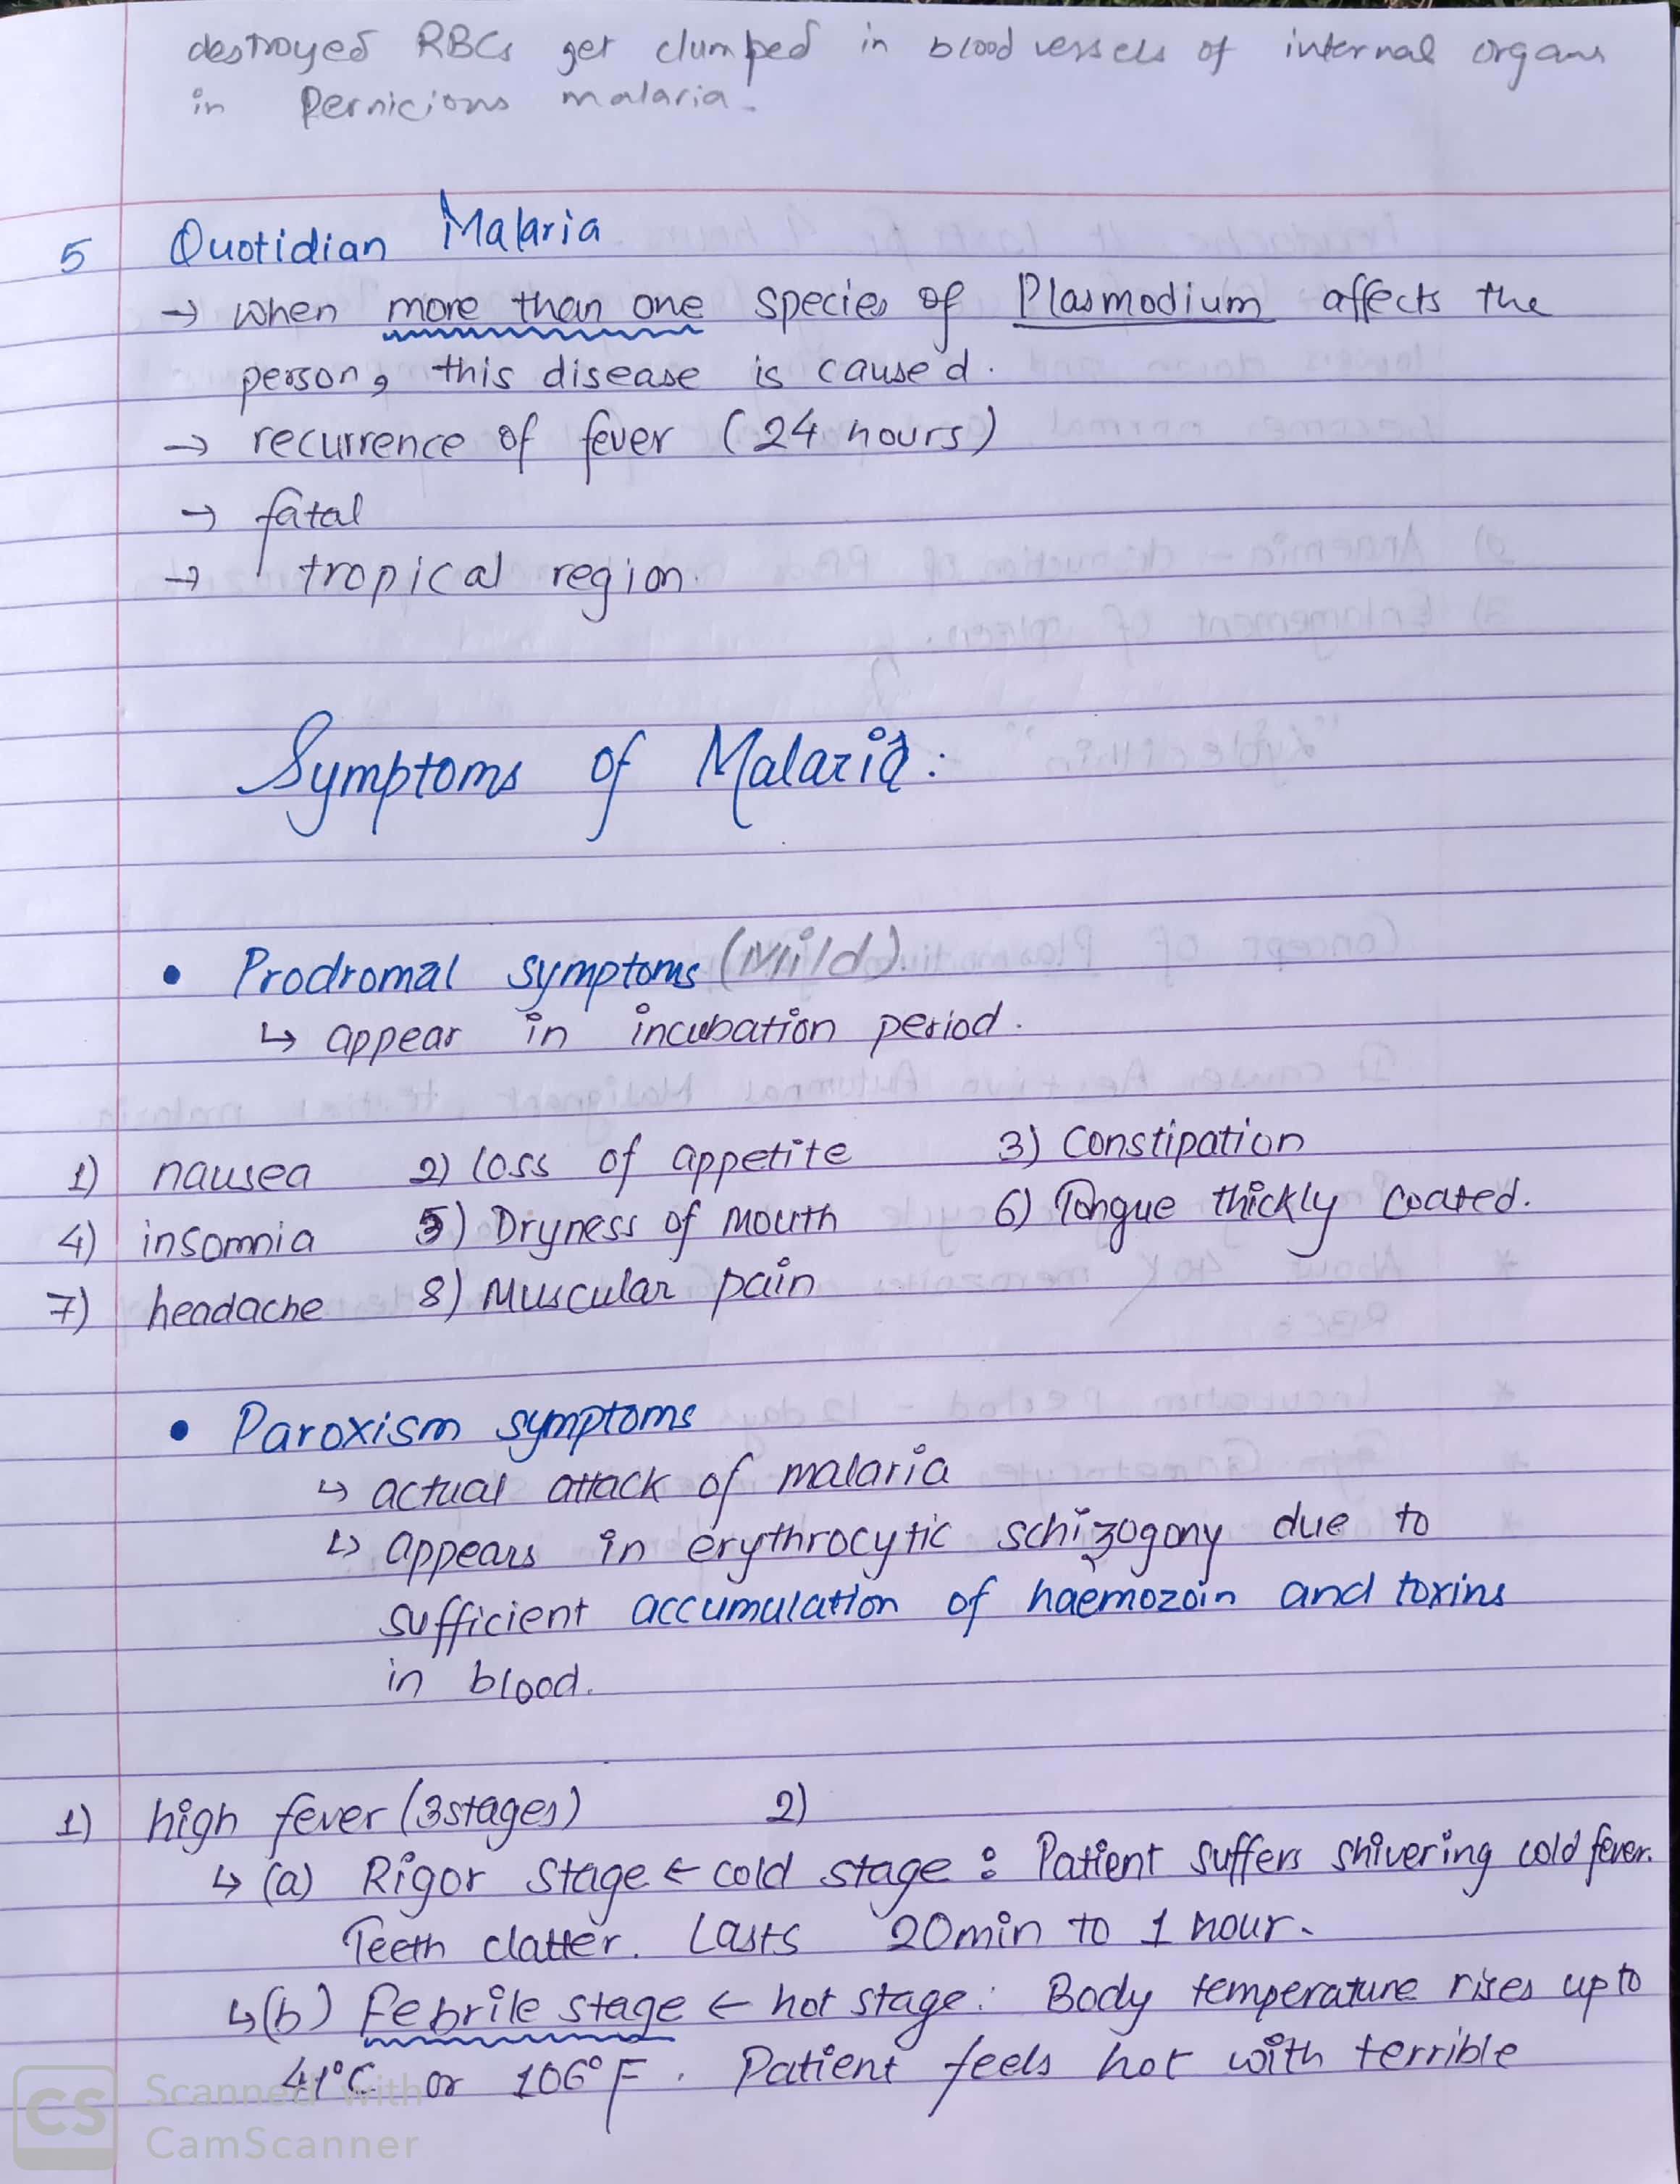 destroyed RBCs get clumped in blood vessels of internal organs
in Pernicious malaria.
5 Quotidian Malaria
→ when more than one species of Plasmodium affects the
person, this disease is caused.
→ recurrence of fever (24 hours)
→ fatal
→ tropical region.
Symptoms of Malaria:
• Prodromal symptoms (Mild).
↳ appear in incubation period.
1) nausea 2) loss of appetite 3) Constipation
4) insomnia 5) Dryness of mouth 6) Tongue thickly coated.
7) headache 8) Muscular pain
• Paroxism symptoms
↳ actual attack of malaria
↳ appears in erythrocytic schizogony due to
sufficient accumulation of haemozoin and toxins
in blood.
1) high fever (3stages) 2)
↳ (a) Rigor Stage ← cold stage : Patient suffers shivering cold fever.
Teeth clatter. Lasts 20min to 1 hour.
↳ (b) febrile stage ← hot stage: Body temperature rises up to
41°C or 106°F. Patient feels hot with terrible
CS Scanned with
CamScanner